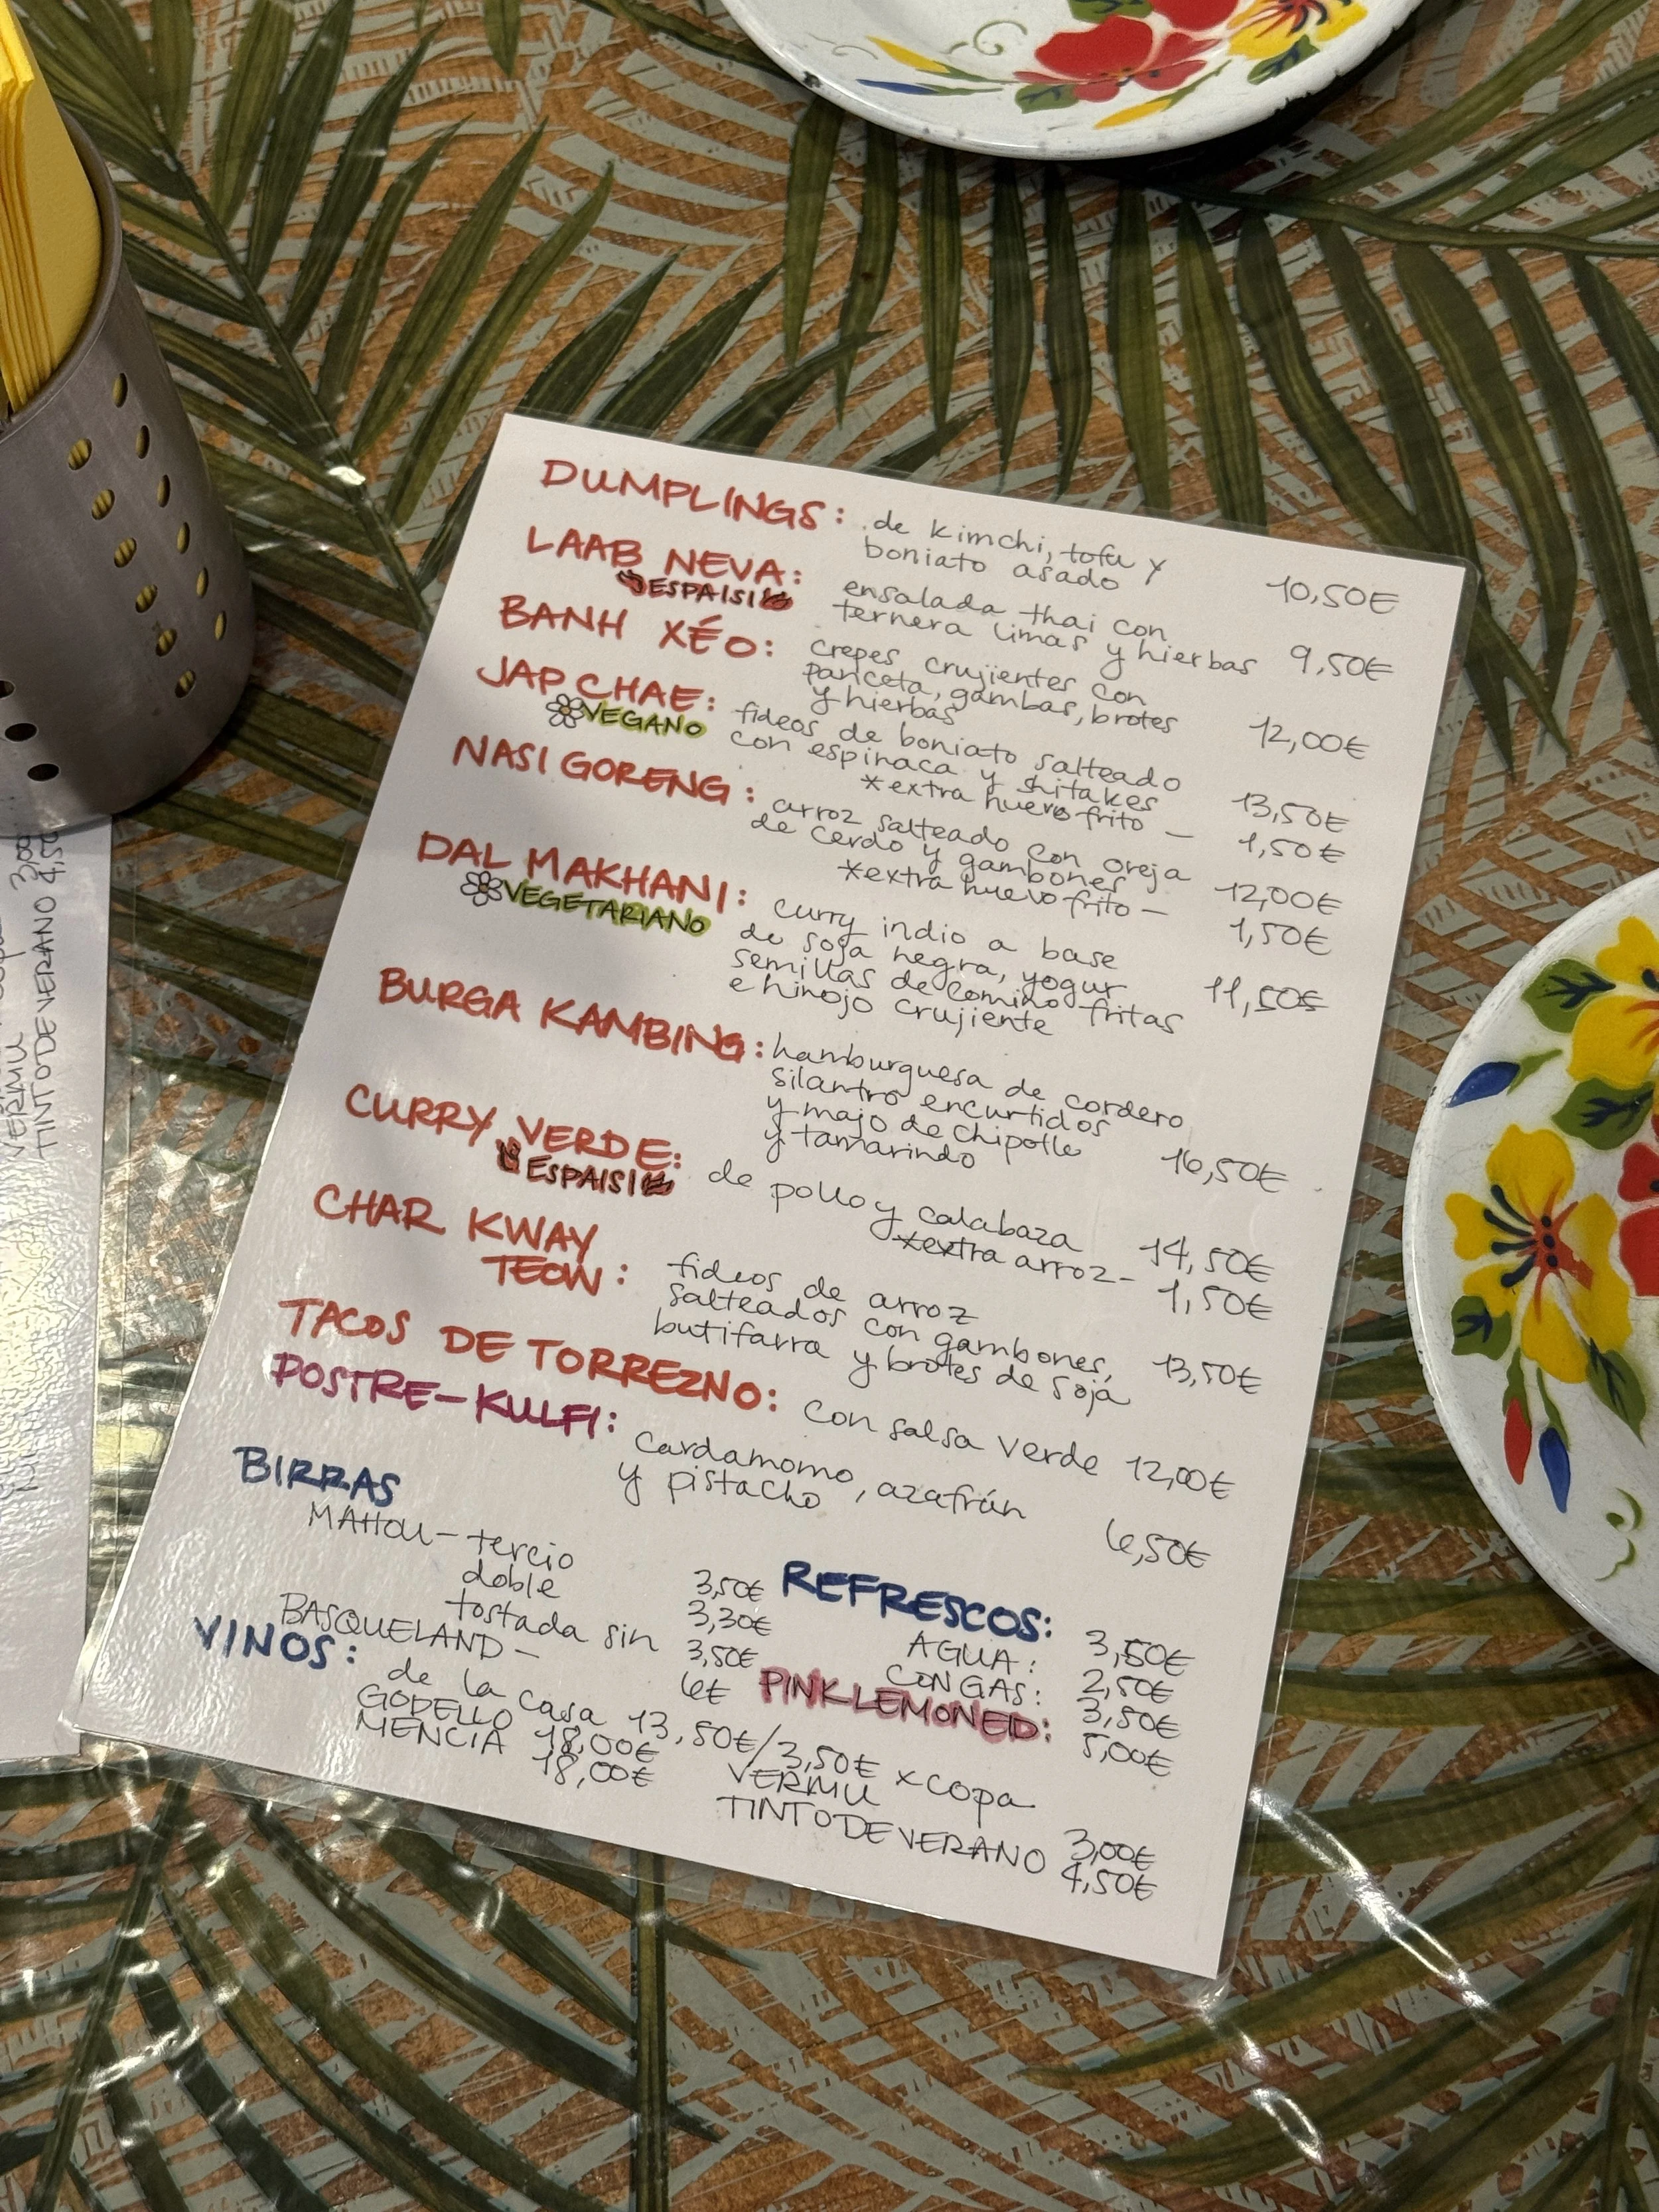 DUMPLINGS: de kimchi, tofu y
boniato asado 10,50€
LAAB NEVA: ensalada thai con
ESPAISI ternera limas y hierbas 9,50€
BANH XÉO: crepes crujientes con
panceta, gambas, brotes
y hierbas 12,00€
JAP CHAE: fideos de boniato salteado
VEGANO con espinaca y shitakes 13,50€
*extra huevo frito — 1,50€
NASI GORENG: arroz salteado con oreja
de cerdo y gambones 12,00€
*extra huevo frito — 1,50€
DAL MAKHANI: curry indio a base
VEGETARIANO de soja negra, yogur
semillas de comino fritas 11,50€
e hinojo crujiente
BURGA KAMBING: hamburguesa de cordero
silantro encurtidos
y majo de chipotle
y tamarindo 16,50€
CURRY VERDE: de pollo y calabaza 14,50€
ESPAISI *extra arroz - 1,50€
CHAR KWAY
TEOW: fideos de arroz
salteados con gambones,
butifarra y brotes de soja 13,50€
TACOS DE TORREZNO: con salsa verde 12,00€
POSTRE-KULFI: cardamomo, azafrán
y pistacho 6,50€
BIRRAS
MAHOU - tercio 3,50€
doble 3,30€
tostada sin 3,50€
BASQUELAND - 6€
REFRESCOS: 3,50€
AGUA: 2,50€
CON GAS: 3,50€
PINK LEMONED: 5,00€
VINOS:
de la casa 13,50€/3,50€ x copa
GODELLO 18,00€
MENCIA 18,00€
VERMU 3,00€
TINTO DE VERANO 4,50€
VERMU 3,00
TINTO DE VERANO 4,50